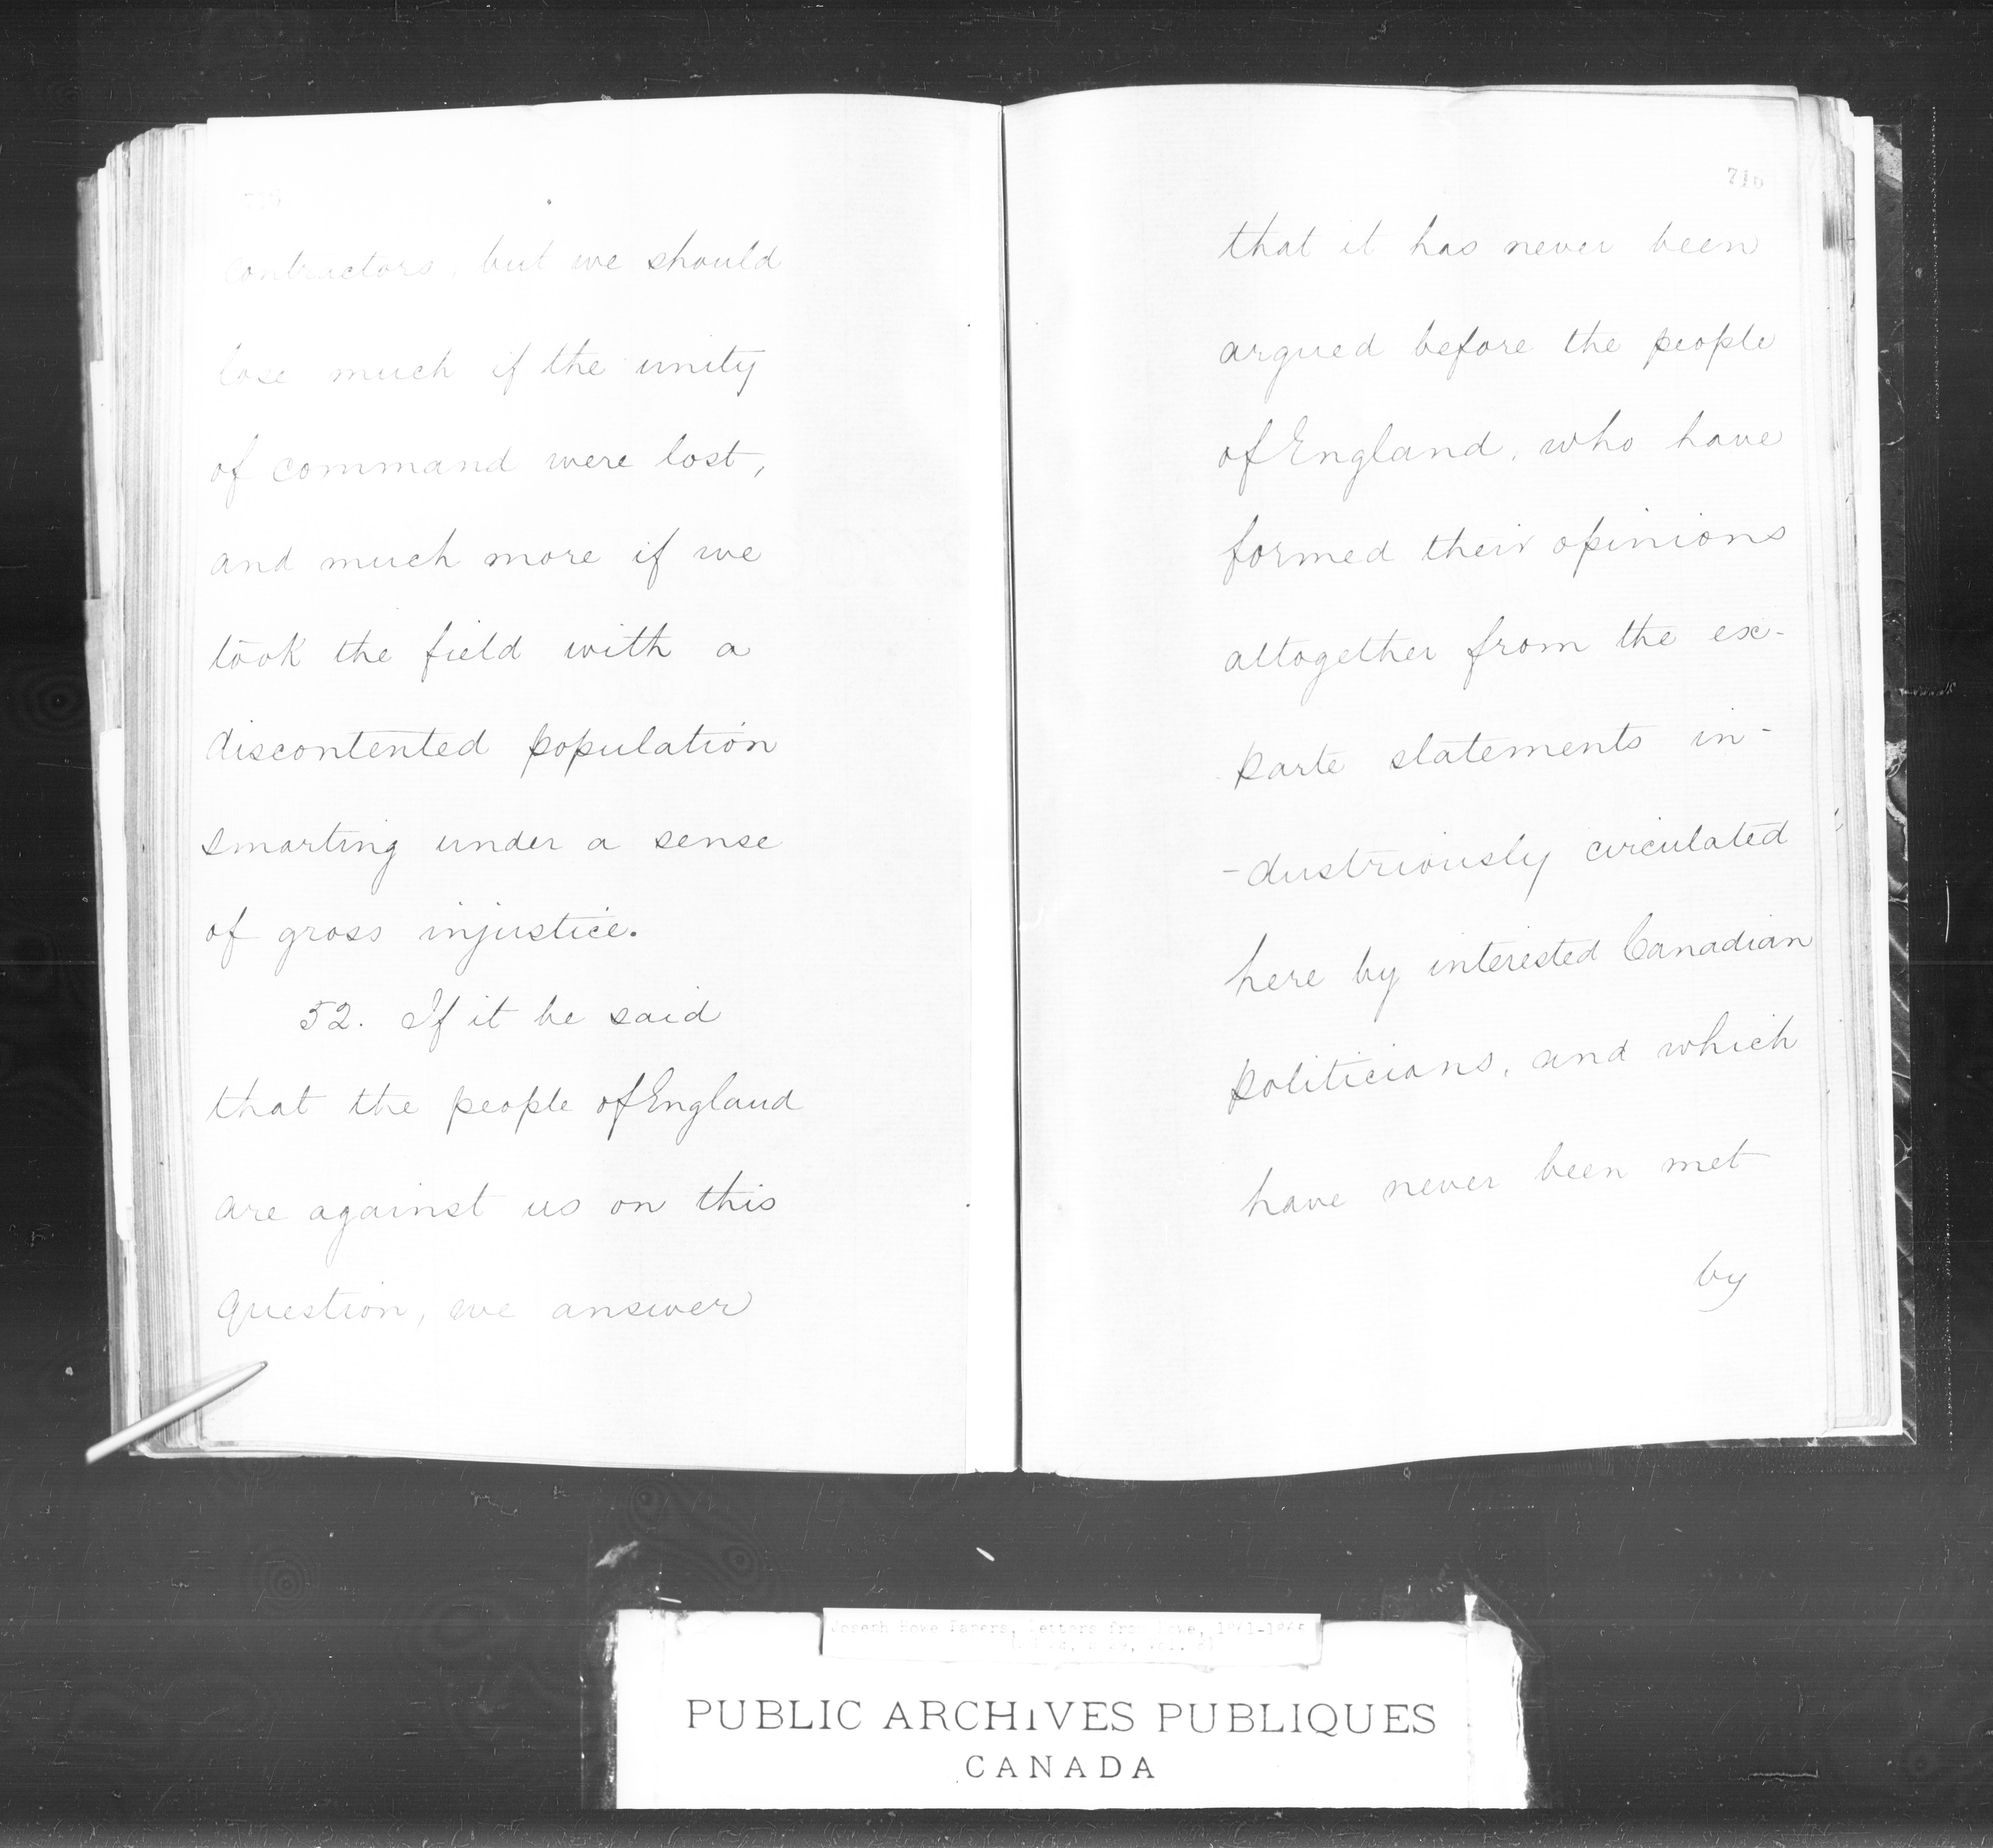 contractors, but we should
lose much if the unity
of command were lost,
and much more if we
took the field with a
discontented population
smarting under a sense
of gross injustice.
52. If it be said
that the people of England
are against us on this
question, we answer
that it has never been
argued before the people
of England, who have
formed their opinions
altogether from the ex-
parte statements in-
-dustriously circulated
here by interested Canadian
politicians, and which
have never been met
by
Joseph Howe Papers, Letters from Howe,
PUBLIC ARCHIVES PUBLIQUES
CANADA